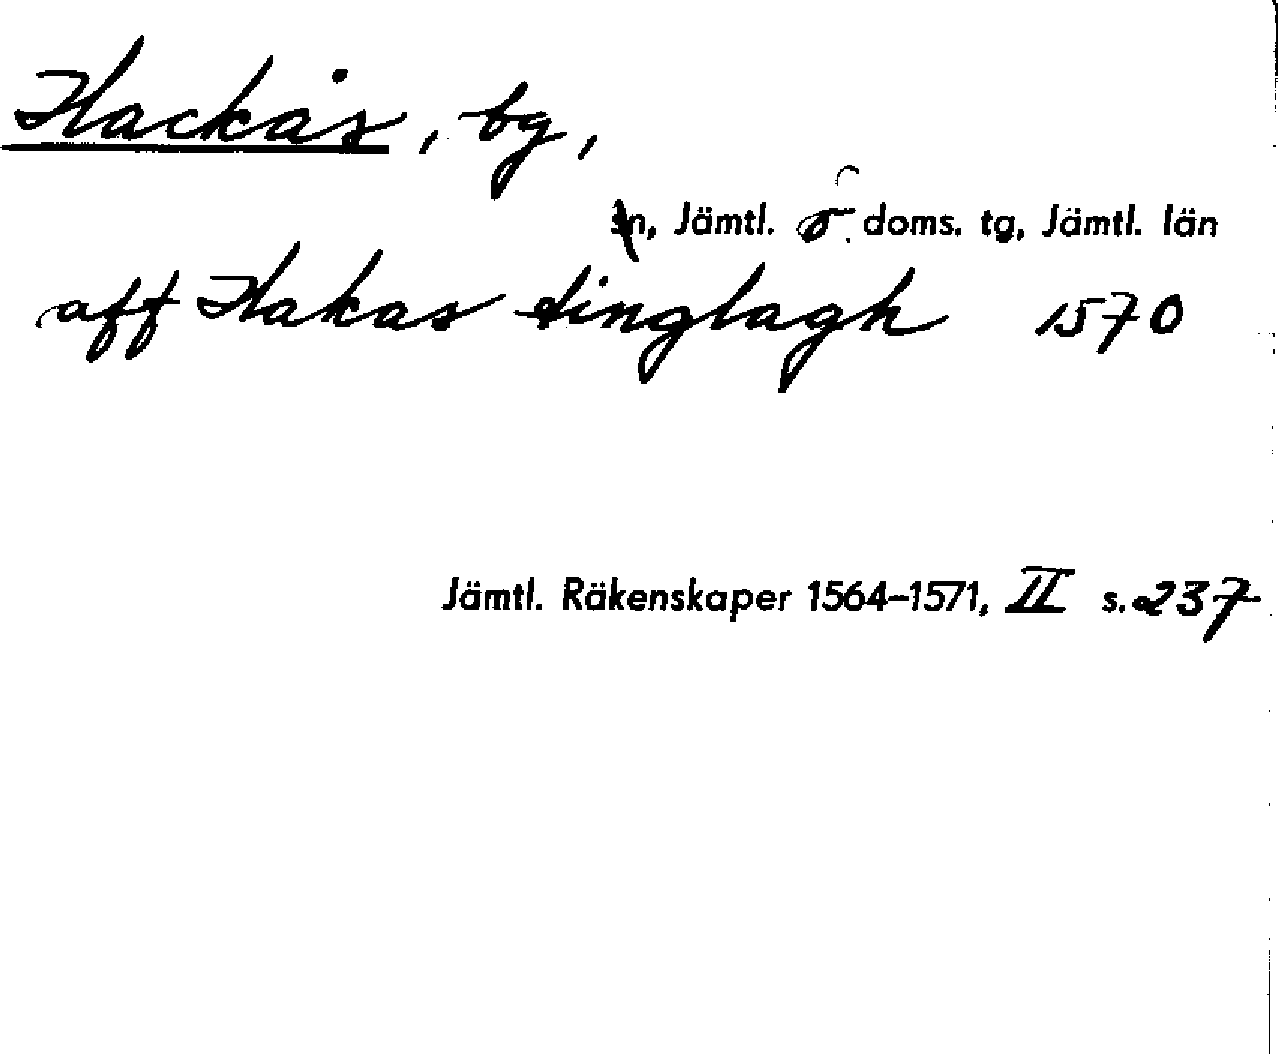 Hackås, bg,
sn, Jämtl. ö. doms. tg, Jämtl. län
aff Hakas tinglagh 1570
Jämtl. Räkenskaper 1564–1571, II s. 237